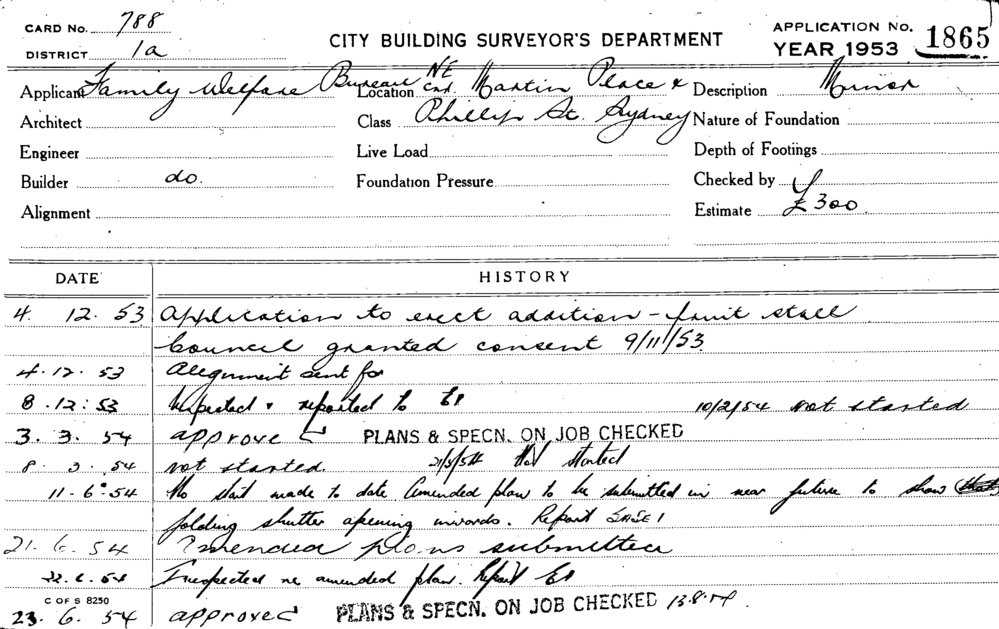 CARD No. 788
DISTRICT 1a
CITY BUILDING SURVEYOR'S DEPARTMENT
APPLICATION No. 1865
YEAR 1953
Applicant Family Welfare Bureau
Location NE Cnr. Martin Place &
Description Minor
Architect
Class Phillip St. Sydney
Nature of Foundation
Engineer
Live Load
Depth of Footings
Builder do.
Foundation Pressure
Checked by
Alignment
Estimate £300
DATE HISTORY
4. 12. 53 Application to erect addition - fruit stall
Council granted consent 9/11/53
4.12.53 Alignment sent for
8.12.53 Inspected & reported to 10/2/54 Not started
3.3.54 approve PLANS & SPECN. ON JOB CHECKED
8.3.54 Not started. 21/5/54 Not started
11.6.54 No start made to date Amended plan to be submitted in near future to show
folding shutter opening inwards. Report
21.6.54 Amended plans submitted
22.6.54 Inspected re amended plan. Report
C OF S 8250
23.6.54 approved PLANS & SPECN. ON JOB CHECKED 13.8.54.